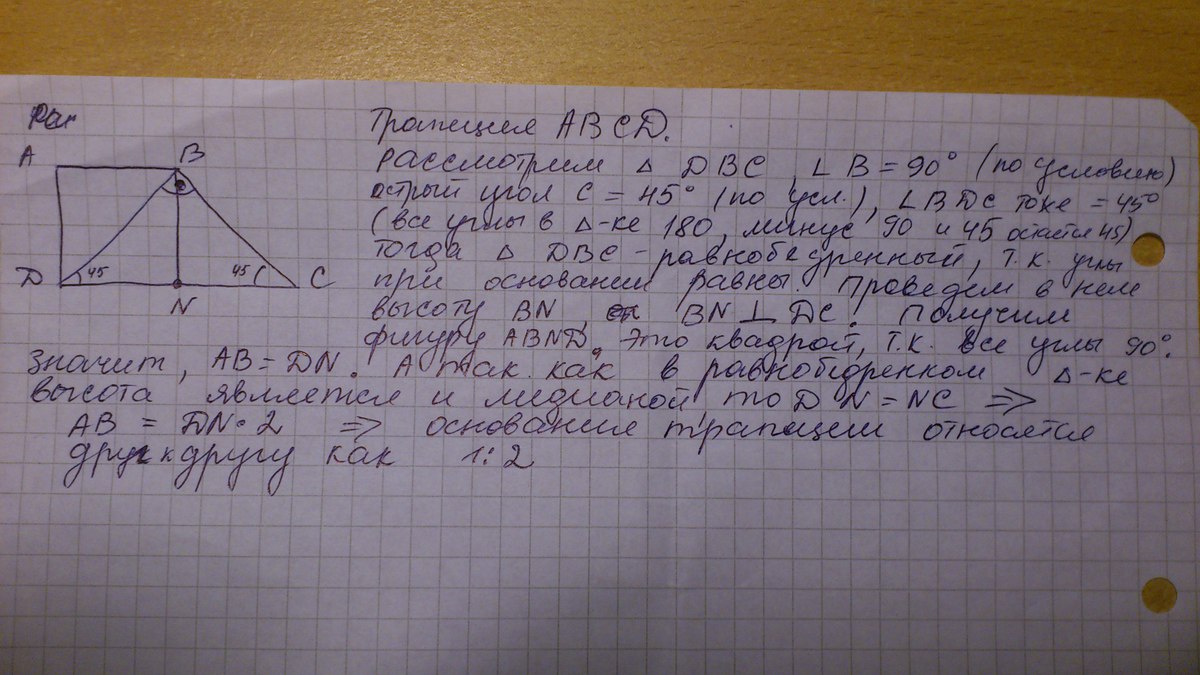 Трапеция ABCD.
A B
D 45 45 C
N
рассмотрим △ DBC, ∠B = 90° (по условию)
острый угол C = 45° (по усл.), ∠BDC тоже = 45°
(все углы в △-ке 180, минус 90 и 45 остаётся 45)
Тогда △ DBC - равнобедренный, т.к. углы
при основании равны. Проведем в нем
высоту BN, BN ⊥ DC. Получим
фигуру ABND. Это квадрат, т.к. все углы 90°.
Значит, AB = DN. А так как в равнобедренном △-ке
высота является и медианой то DN = NC ⇒
AB = DN·2 ⇒ основания трапеции относятся
друг к другу как 1:2